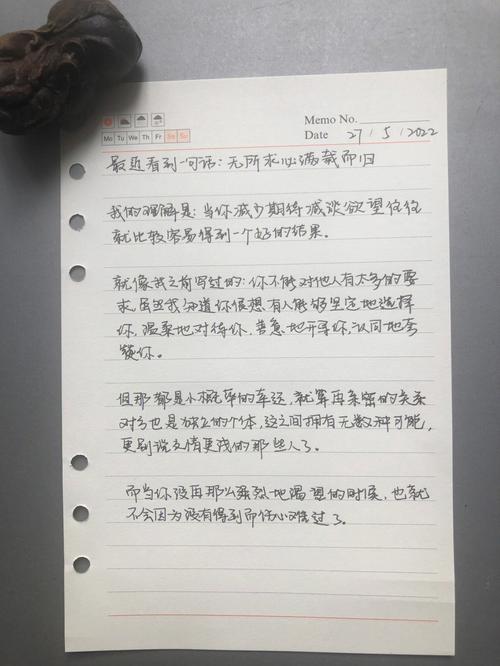 Memo No.
Mo Tu We Th Fr Sa Su
Date 27 / 5 / 2022
最近看到一句话：无所求必满载而归
我的理解是：当你减少期待减淡欲望往往
就比较容易得到一个好的结果。
就像我之前写过的：你不能对他人有太多的要
求。虽然我知道你很想有人能够坚定地选择
你，温柔地对待你，善意地开导你，认同地夸
赞你。
但那都是小概率的幸运，就算再亲密的关系
对方也是独立的个体，这之间拥有无数种可能，
更别说交情更浅的那些人了。
而当你没再那么强烈地渴望的时候，也就
不会因为没有得到而伤心难过了。